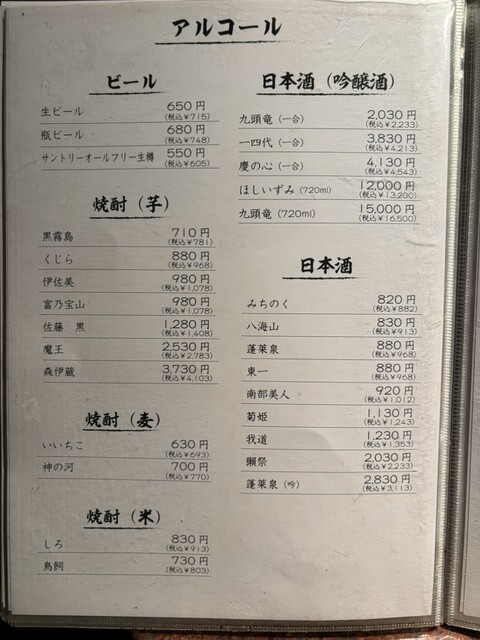 アルコール
ビール
生ビール 650円
(税込¥715)
瓶ビール 680円
(税込¥748)
サントリーオールフリー生樽 550円
(税込¥605)
焼酎（芋）
黒霧島 710円
(税込¥781)
くじら 880円
(税込¥968)
伊佐美 980円
(税込¥1,078)
富乃宝山 980円
(税込¥1,078)
佐藤 黒 1,280円
(税込¥1,408)
魔王 2,530円
(税込¥2,783)
森伊蔵 3,730円
(税込¥4,103)
焼酎（麦）
いいちこ 630円
(税込¥693)
神の河 700円
(税込¥770)
焼酎（米）
しろ 830円
(税込¥913)
鳥飼 730円
(税込¥803)
日本酒（吟醸酒）
九頭竜（一合） 2,030円
(税込¥2,233)
一四代（一合） 3,830円
(税込¥4,213)
慶の心（一合） 4,130円
(税込¥4,543)
ほしいずみ（720ml） 12,000円
(税込¥13,200)
九頭竜（720ml） 15,000円
(税込¥16,500)
日本酒
みちのく 820円
(税込¥882)
八海山 830円
(税込¥913)
蓬莱泉 880円
(税込¥968)
東一 880円
(税込¥968)
南部美人 920円
(税込¥1,012)
菊姫 1,130円
(税込¥1,243)
我道 1,230円
(税込¥1,353)
獺祭 2,030円
(税込¥2,233)
蓬莱泉（吟） 2,830円
(税込¥3,113)